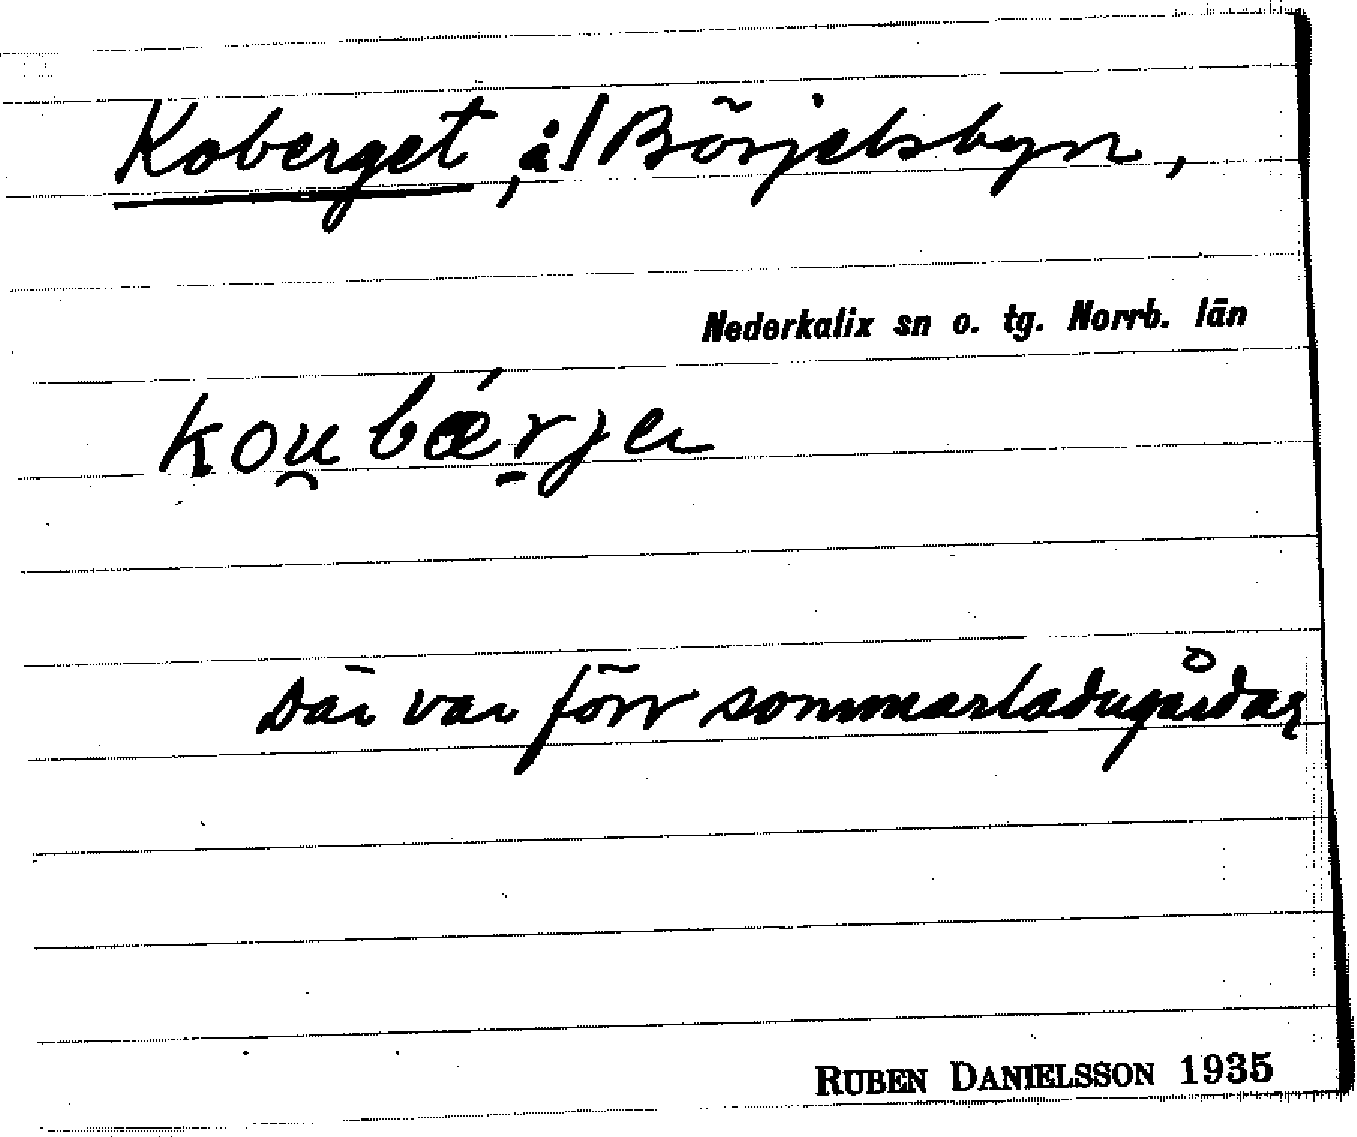 Koberget, å/ Börjelsbyn,
Nederkalix sn o. tg. Norrb. län
kou̯bǽr̠jen
Där var förr sommarladugårdar
RUBEN DANIELSSON 1935